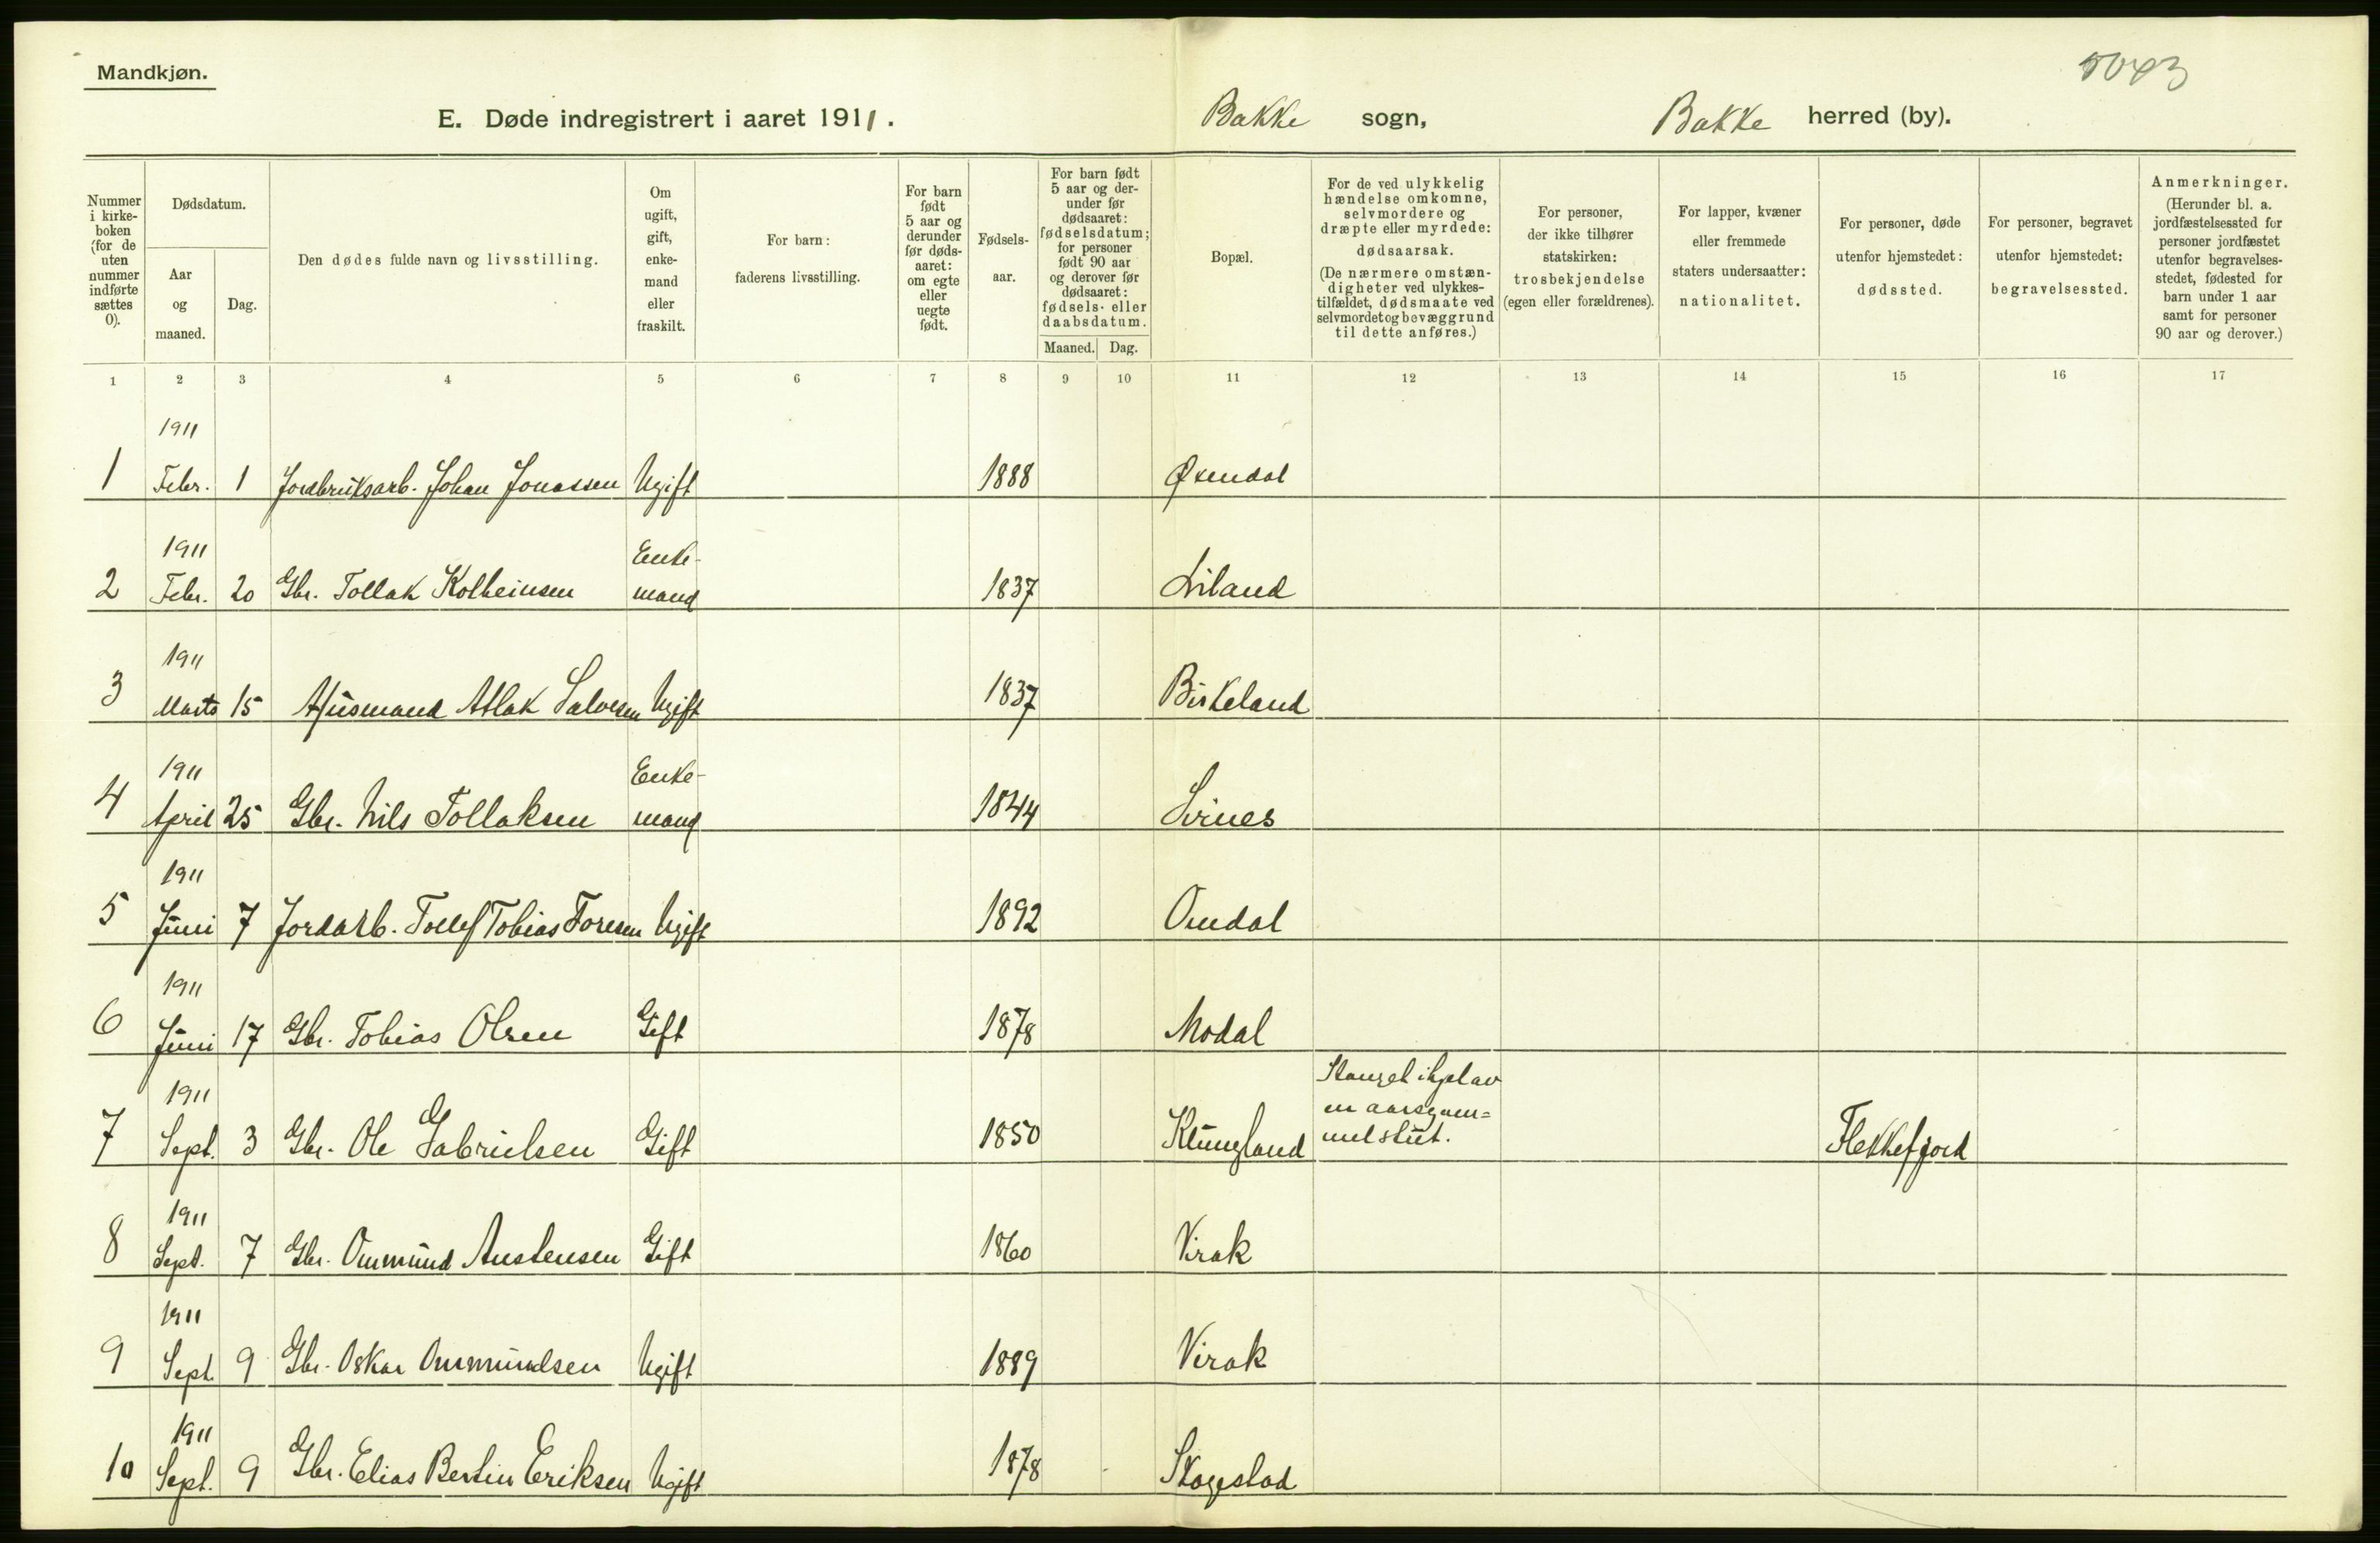 Mandkjøn.
E. Døde indregistrert i aaret 1911.
Bakke sogn,
Bakke herred (by).
Nummer i kirke-boken (for de uten nummer indførte sættes 0).
Dødsdatum.
Aar og maaned.
Dag.
Den dødes fulde navn og livsstilling.
Om ugift, gift, enke-mand eller fraskilt.
For barn: faderens livsstilling.
For barn født 5 aar og derunder før døds-aaret: om egte eller uegte født.
Fødsels-aar.
For barn født 5 aar og der-under før dødsaaret: fødselsdatum; for personer født 90 aar og derover før dødsaaret: fødsels- eller daabsdatum.
Maaned. Dag.
Bopæl.
For de ved ulykkelig hændelse omkomne, selvmordere og dræpte eller myrdede: dødsaarsak. (De nærmere omstæn-digheter ved ulykkes-tilfældet, dødsmaate ved selvmordet og bevæggrund til dette anføres.)
For personer, der ikke tilhører statskirken: trosbekjendelse (egen eller forældrenes).
For lapper, kvæner eller fremmede staters undersaatter: nationalitet.
For personer, døde utenfor hjemstedet: dødssted.
For personer, begravet utenfor hjemstedet: begravelsessted.
Anmerkninger. (Herunder bl. a. jordfæstelsessted for personer jordfæstet utenfor begravelses-stedet, fødested for barn under 1 aar samt for personer 90 aar og derover.)
1 2 3 4 5 6 7 8 9 10 11 12 13 14 15 16 17
1911
1 Febr. 1 Jordbruksarb. Johan Jonassen Ugift 1888 Øxendal
1911 Enke-
2 Febr. 20 Gbr. Tollak Kolbeinsen mand 1837 Liland
1911
3 Marts 15 Husmand Atlak Salvesen Ugift 1837 Birkeland
1911 Enke-
4 April 25 Gbr. Nils Tollaksen mand 1844 Sirnes
1911
5 Juni 7 Jordarb. Tollef Tobias Toresen Ugift 1892 Omdal
1911
6 Juni 17 Gbr. Tobias Olsen Gift 1878 Modal
1911 Stanget ihjel av
en aarsgam=
7 Sept. 3 Gbr. Ole Gabrielsen Gift 1850 Klungland mel stut. Flekkefjord
1911
8 Sept. 7 Gbr. Ommund Austensen Gift 1860 Virak
1911
9 Sept. 9 Gbr. Oskar Ommundsen Ugift 1889 Virak
1911
10 Sept. 9 Gbr. Elias Bertin Eriksen Ugift 1878 Skogestad